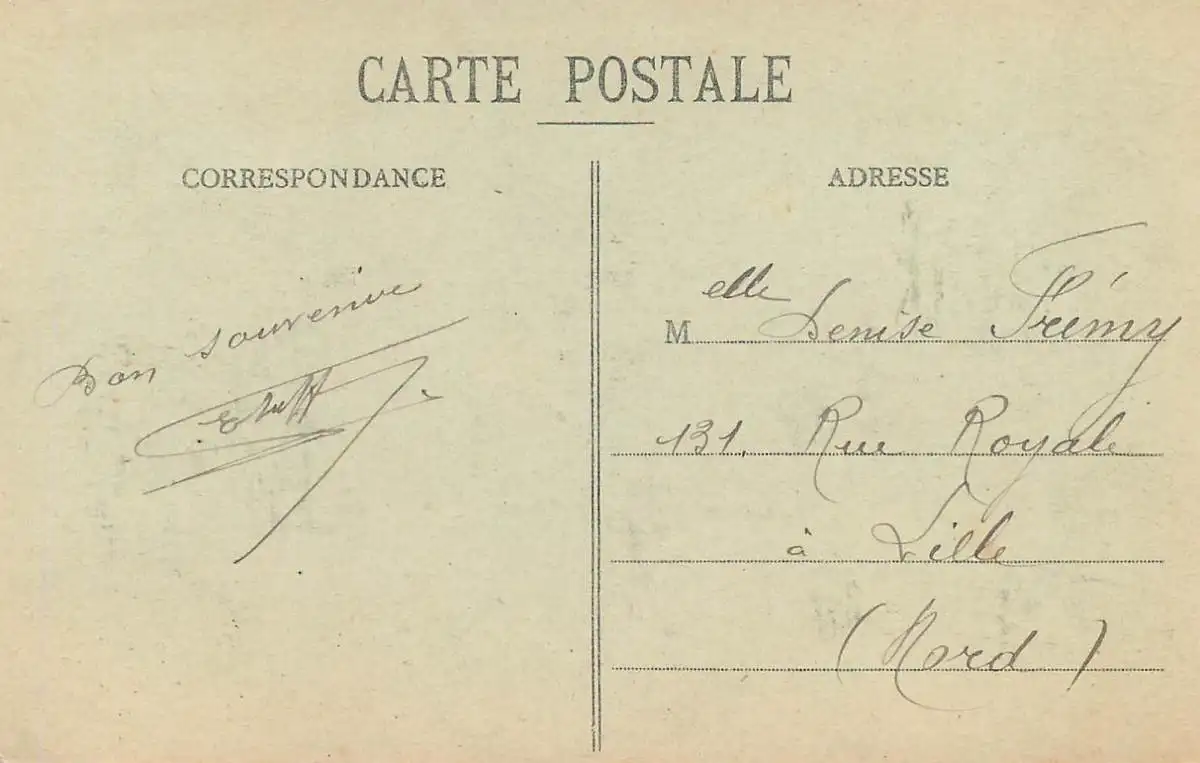 CARTE POSTALE
CORRESPONDANCE
Bon souvenir
ADRESSE
Melle Denise Frémy
131, Rue Royale
à Lille
(Nord)